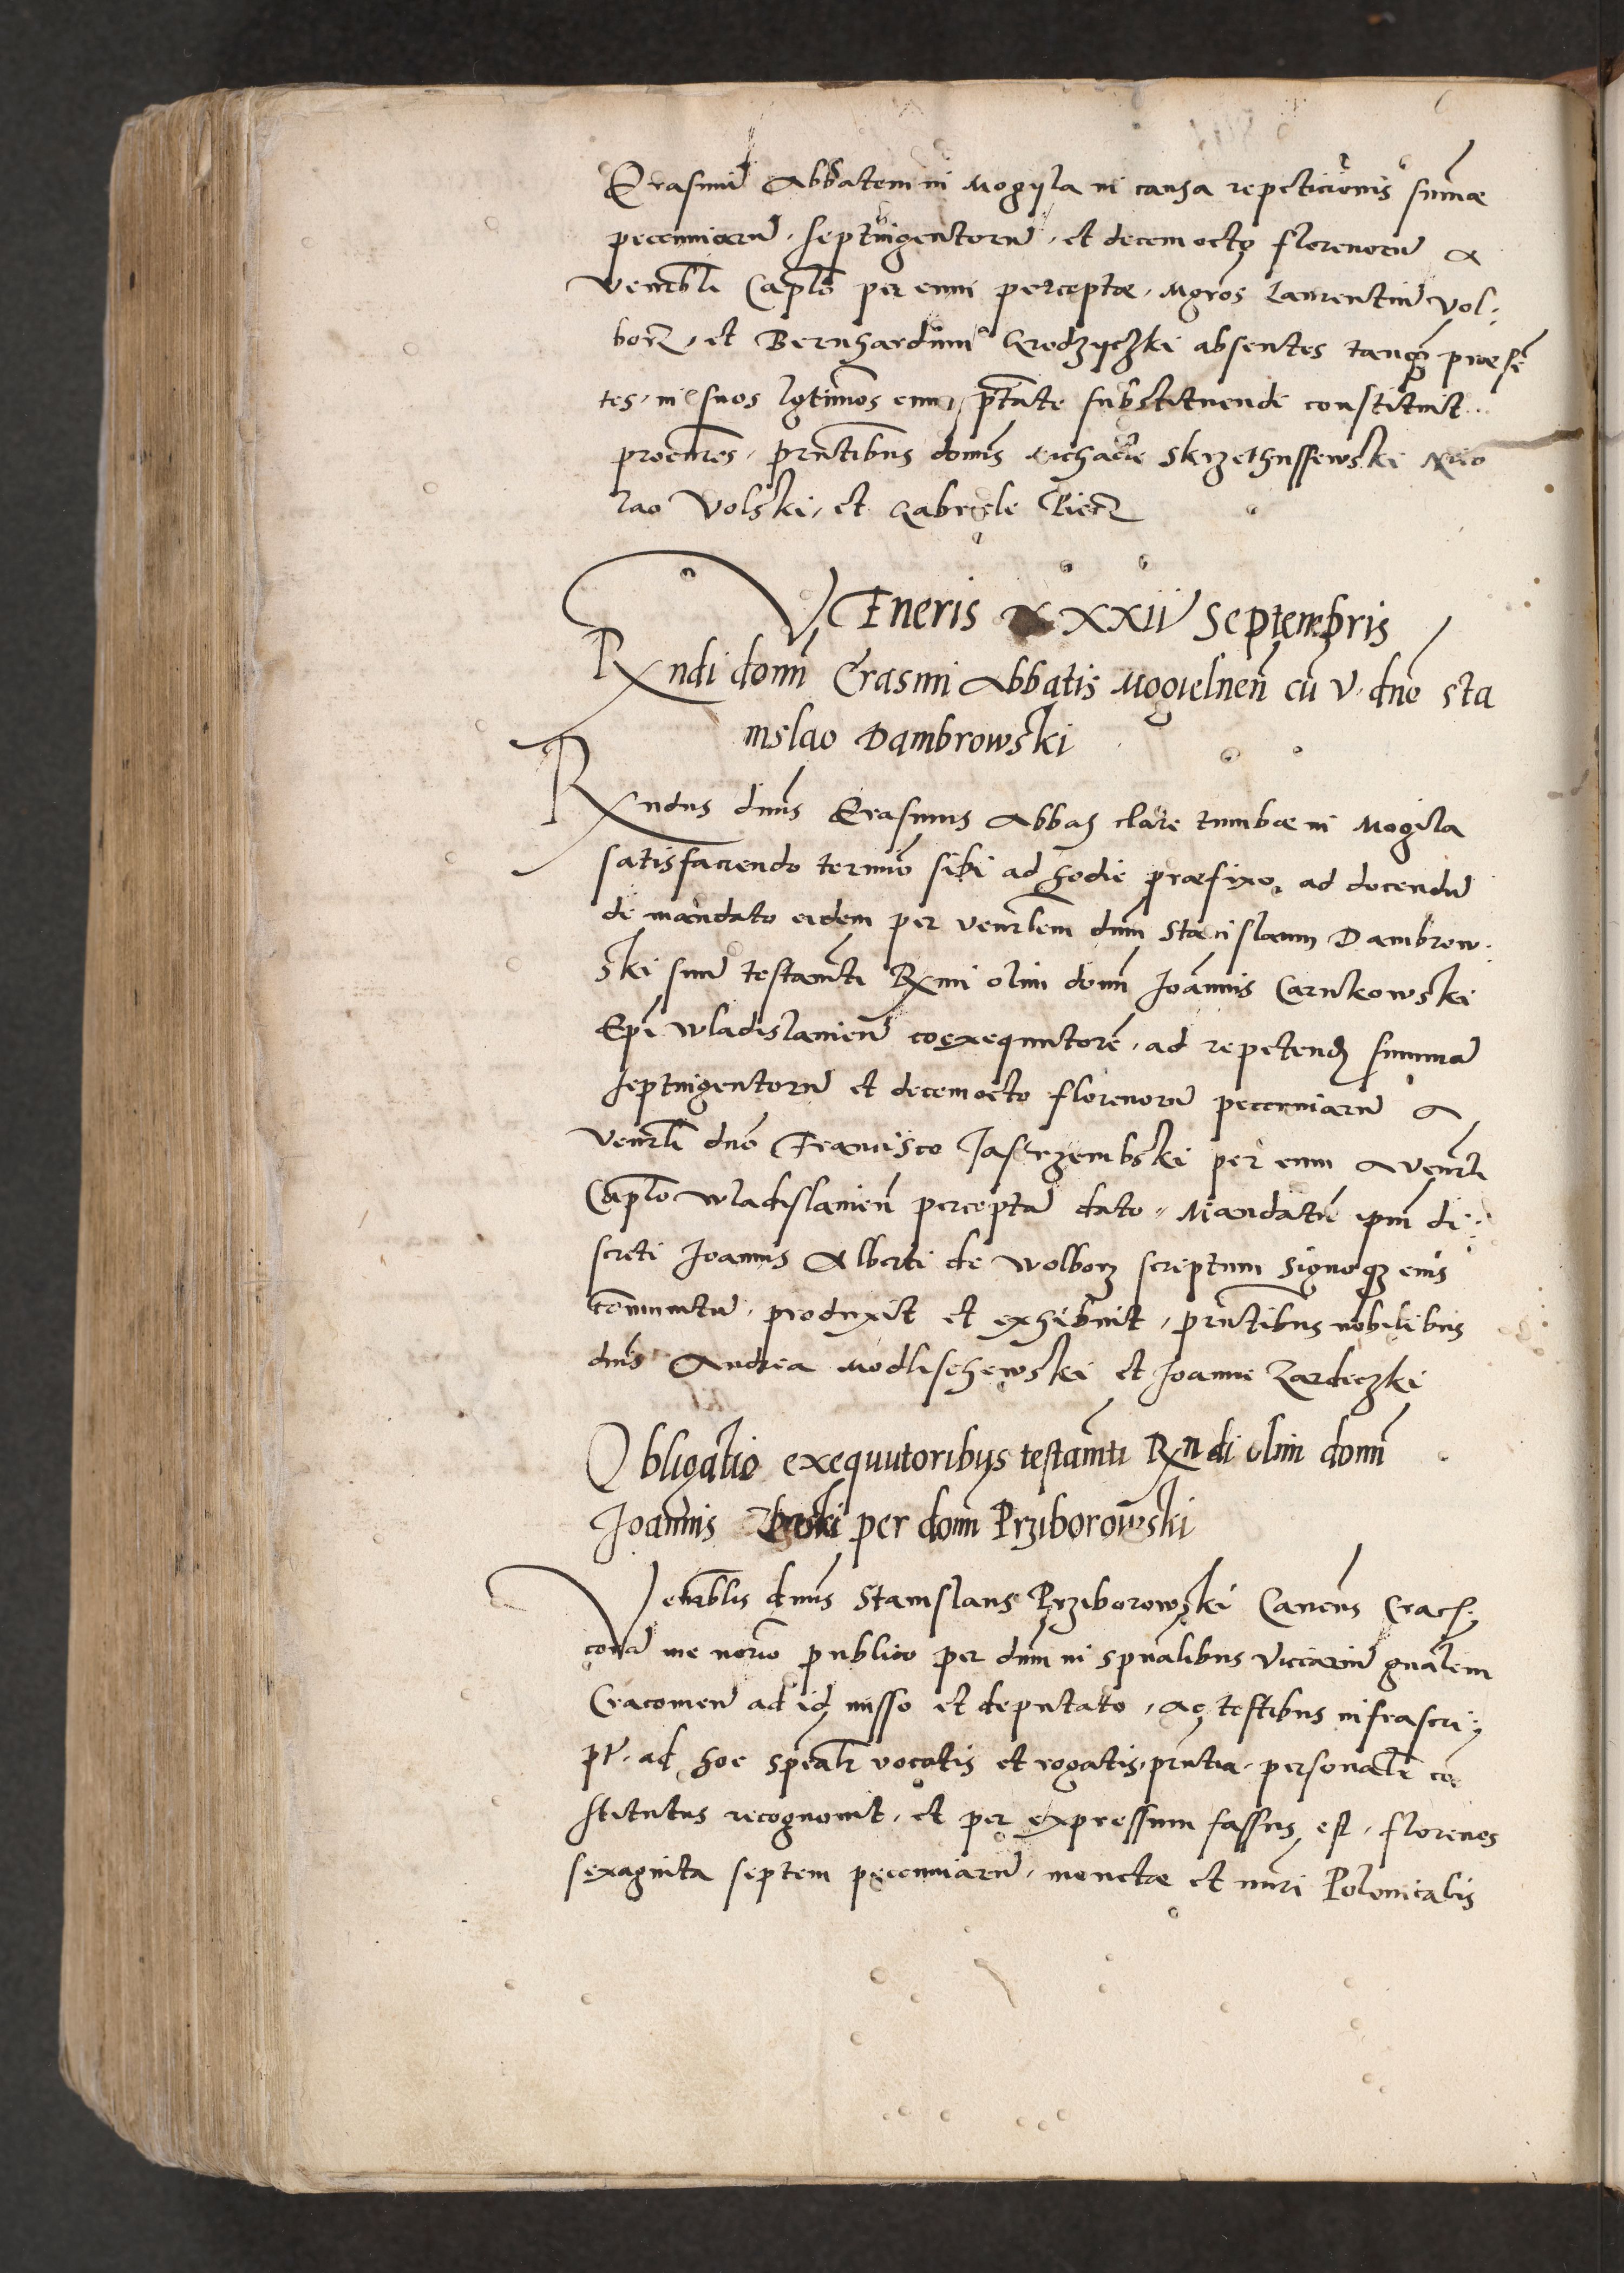 Erasmū Abbatem in Mogyla in causa repeticionis sum̄ae
pecuniarū, septuigentorū, et decem octo florenorū a
venerbli Caplo per eum perceptae, Mgros Laurentiū Vol:
borz, et Bernhardum Grodzyczki absentes tanq̄ praesē
tes, in suos lgtimos cum ptāte substituendi constituit
procures, prntibus dom̄s Michaele Skrzethussewski Nico
lao Volski, et Gabriele
VEneris XXII Septembris
Rndi domī Erasmi Abbatis Mogielneñ cū V. dno Sta
nislao Dambrowski
Rndus dn̄us Erasmus Abbas clare tumbae in Mogila
satisfaciendo termio sibi ad hodie praefixo, ad docendū
de mandato eidem per venrlem dnm Stanislaum Dambrow:
ski suū testamti Rmi olim domī Joānnis Carnkowski
Epī Wladislauieñ coexequutorē, ad repetend summā
septuigentorū et decem octo florenorū pecuniarū a
venrli dno Francisco Jastrzembski per eum a venrli
Caplo Wladislauieñ perceptā dato, Mandatū ipm di:
screti Joannis Alberti de Wolborz scriptum signoq3 eius
com̄unitū, produxit et exhibuit, prntibus nobilibus
dnis Andrea Modlischewski et Joanne Zardeczki
Obligatio exequutoribus testamti Rndi olim domī
Joannis per domī Prziborowski
Venrablis dn̄us Stanislaus Prziborowski Cancus Crac
corā me norio publico per dnm in spualibus Viccariū gnalem
Cracouieñ ad id misso et deputato, ac testibus infrascri:
pt. ad hoc spealr vocatis et rogatis prntia, personalr co
stitutus recognouit, et per expressum fassus est, florenos
sexaginta septem pecuniarū, monetae et nuri Polonicalis